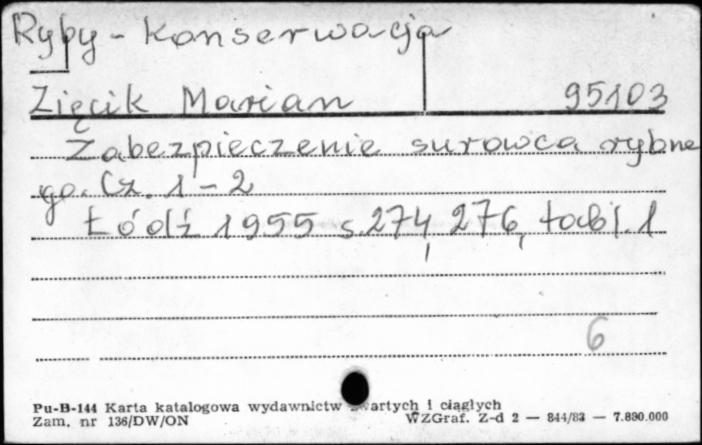 Ryby - Konserwacja
Zięcik Marian 95103
Zabezpieczenie surowca rybne
go. Cz. 1-2
Łódź 1955 s. 274, 276, tabl. 1
6
Pu-B-144 Karta katalogowa wydawnictw zwartych i ciągłych
Zam. nr 136/DW/ON WZGraf. Z-d 2 — 844/83 — 7.890.000